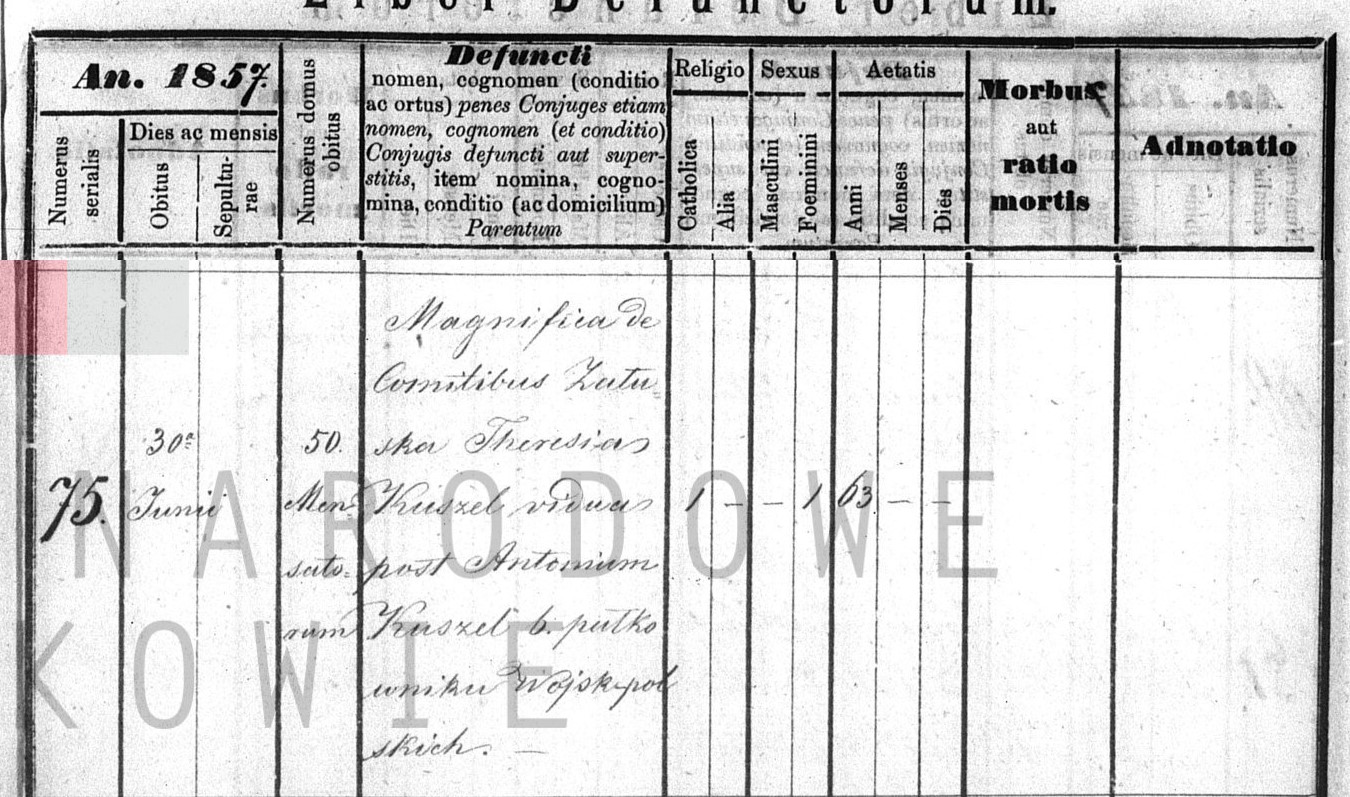 Liber Defunctorum.
An. 1857.
Numerus serialis
Dies ac mensis
Obitus
Sepultu-
rae
Numerus domus
obitus
Defuncti
nomen, cognomen (conditio
ac ortus) penes Conjuges etiam
nomen, cognomen (et conditio)
Conjugis defuncti aut super-
stitis, item nomina, cogno-
mina, conditio (ac domicilium)
Parentum
Religio
Catholica
Alia
Sexus
Masculini
Foeminini
Aetatis
Anni
Menses
Dies
Morbus
aut
ratio
mortis
Adnotatio
Magnifica de
Comitibus Zału=
30ª 50. ska Theresia
75. Junii Men= Kuszel vidua 1 – – 1 63 – –
sato= post Antonium
rum Kuszel b. pułko
wniku Wojsk pol
skich. —
NARODOWE
KOWIE